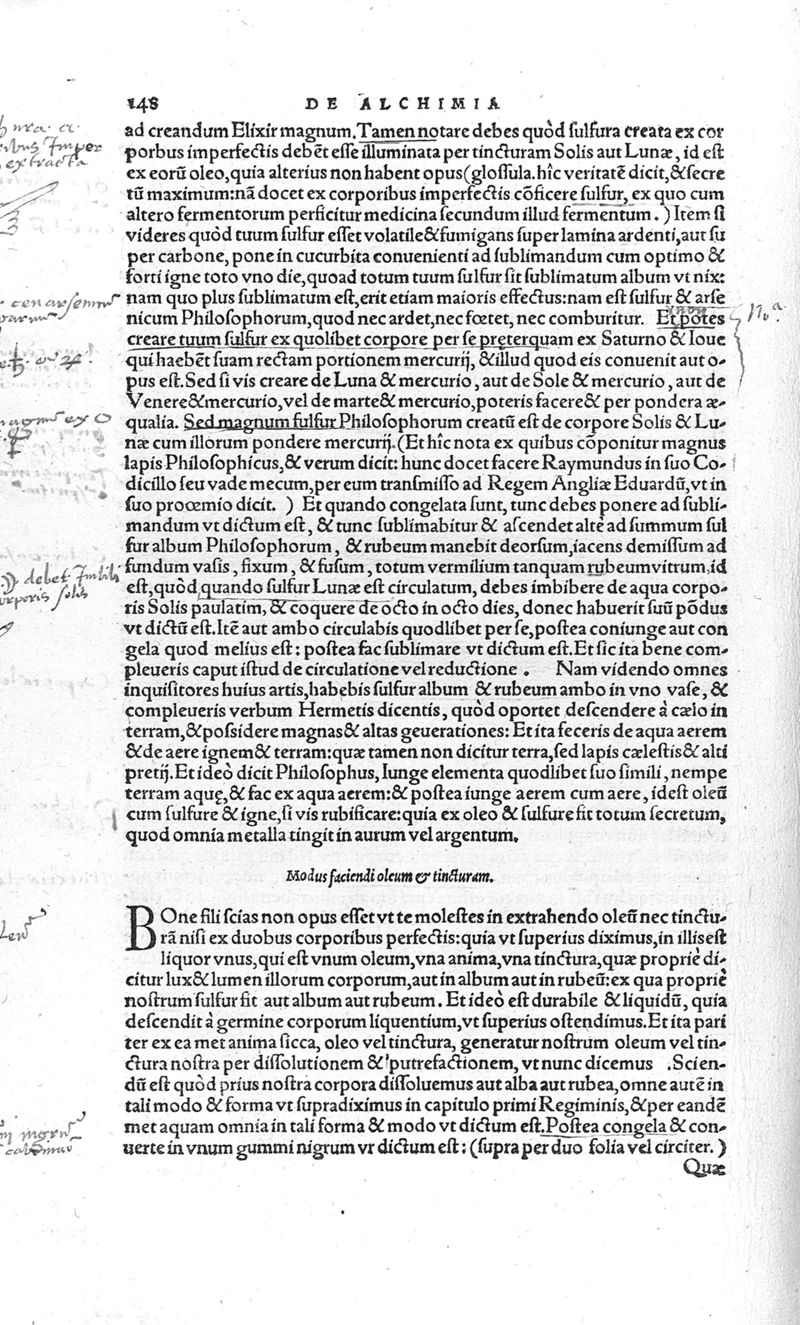 148 DE ALCHIMIA
ad creandum Elixir magnum. Tamen notare debes quòd ſulfura creata ex cor
poribus imperfectis debēt eſſe illuminata per tincturam Solis aut Lunæ, id eſt
ex eorū oleo, quia alterius non habent opus (gloſſula. hîc veritatē dicit, & ſecre
tū maximum: nā docet ex corporibus imperfectis cōficere ſulfur, ex quo cum
altero fermentorum perficitur medicina ſecundum illud fermentum. ) Item ſi
videres quòd tuum ſulfur eſſet volatile & fumigans ſuper lamina ardenti, aut ſu
per carbone, pone in cucurbita conuenienti ad ſublimandum cum optimo &
forti igne toto vno die, quoad totum tuum ſulfur ſit ſublimatum album vt nix:
nam quo plus ſublimatum eſt, erit etiam maioris effectus: nam eſt ſulfur & arſe
nicum Philoſophorum, quod nec ardet, nec fœtet, nec comburitur. Et potes
non
Noa.
creare tuum ſulfur ex quolibet corpore per ſe pręterquam ex Saturno & Ioue
qui haebēt ſuam rectam portionem mercurij, & illud quod eis conuenit aut o-
pus eſt. Sed ſi vis creare de Luna & mercurio, aut de Sole & mercurio, aut de
Venere & mercurio, vel de marte & mercurio, poteris facere & per pondera æ-
qualia. Sed magnum ſulfur Philoſophorum creatū eſt de corpore Solis & Lu-
næ cum illorum pondere mercurij. (Et hîc nota ex quibus cōponitur magnus
lapis Philoſophicus, & verum dicit: hunc docet facere Raymundus in ſuo Co-
dicillo ſeu vade mecum, per eum tranſmiſſo ad Regem Angliæ Eduardū, vt in
ſuo prooemio dicit. ) Et quando congelata ſunt, tunc debes ponere ad ſubli-
mandum vt dictum eſt, & tunc ſublimabitur & aſcendet altè ad ſummum ſul
fur album Philoſophorum, & rubeum manebit deorſum, iacens demiſſum ad
fundum vaſis, fixum, & fuſum, totum vermilium tanquam rubeum vitrum, id
eſt, quòd quando ſulfur Lunæ eſt circulatum, debes imbibere de aqua corpo-
ris Solis paulatim, & coquere de octo in octo dies, donec habuerit ſuū pōdus
vt dictū eſt. Itē aut ambo circulabis quodlibet per ſe, poſtea coniunge aut con
gela quod melius eſt: poſtea fac ſublimare vt dictum eſt. Et ſic ita bene com-
pleueris caput iſtud de circulatione vel reductione. Nam videndo omnes
inquiſitores huius artis, habebis ſulfur album & rubeum ambo in vno vaſe, &
compleueris verbum Hermetis dicentis, quòd oportet deſcendere à cælo in
terram, & poſsidere magnas & altas geuerationes: Et ita feceris de aqua aerem
& de aere ignem & terram: quæ tamen non dicitur terra, ſed lapis cæleſtis & alti
pretij. Et ideò dicit Philoſophus, Iunge elementa quodlibet ſuo ſimili, nempe
terram aquę, & fac ex aqua aerem: & poſtea iunge aerem cum aere, id eſt oleū
cum ſulfure & igne, ſi vis rubificare: quia ex oleo & ſulfure fit totum ſecretum,
quod omnia metalla tingit in aurum vel argentum.
Modus faciendi oleum & tincturam.
BOne fili ſcias non opus eſſet vt te moleſtes in extrahendo oleū nec tinctu-
rā niſi ex duobus corporibus perfectis: quia vt ſuperius diximus, in illis eſt
liquor vnus, qui eſt vnum oleum, vna anima, vna tinctura, quæ propriè di-
citur lux & lumen illorum corporum, aut in album aut in rubeū: ex qua propriè
noſtrum ſulfur fit aut album aut rubeum. Et ideò eſt durabile & liquidū, quia
deſcendit à germine corporum liquentium, vt ſuperius oſtendimus. Et ita pari
ter ex ea met anima ſicca, oleo vel tinctura, generatur noſtrum oleum vel tin-
ctura noſtra per diſſolutionem & putrefactionem, vt nunc dicemus. Scien-
dū eſt quòd prius noſtra corpora diſſoluemus aut alba aut rubea, omne autē in
tali modo & forma vt ſupradiximus in capitulo primi Regiminis, & per eandē
met aquam omnia in tali forma & modo vt dictum eſt. Poſtea congela & con-
uerte in vnum gummi nigrum vr dictum eſt: (ſupra per duo folia vel circiter. )
Quæ
extracta
debet
ſolis